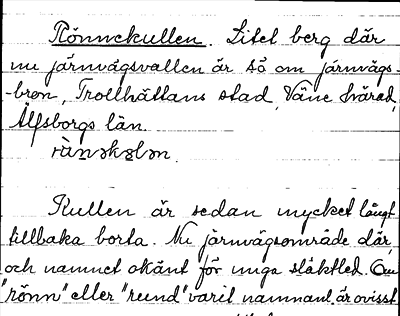 Rönnekullen. Litet berg där
nu järnvägsvallen är sö om järnvägs-
-bron, Trollhättans stad, Väne härad,
Älfsborgs län.
rànəkɵlən.
Kullen är sedan mycket långt
tillbaka borta. Nu järnvägsområde där,
och namnet okänt för unga släktled. Om
"rönn" eller "rund" varit namnanl. är ovisst